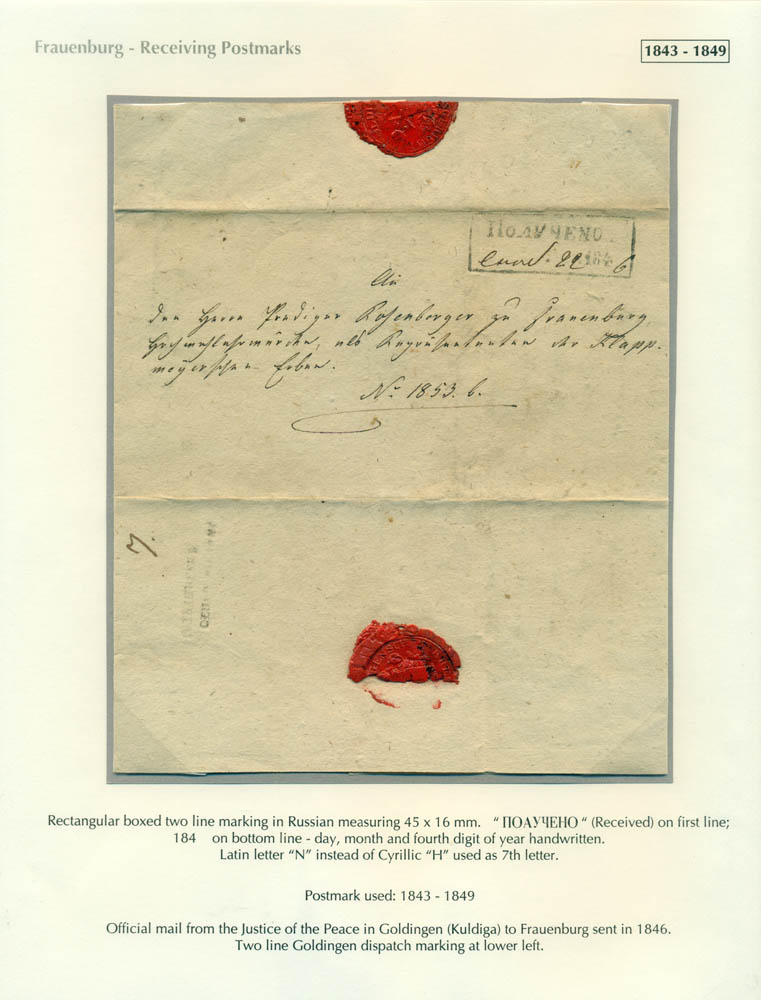 Frauenburg - Receiving Postmarks
1843 - 1849
ПОЛУЧЕNО
22 184 6
An
den Herrn Prediger Rosenberger zu Frauenburg
Hochwohlehrwürden, als Repräsentanten der Klapp-
meyerschen Erben.
No 1853. b.
7.
Rectangular boxed two line marking in Russian measuring 45 x 16 mm. " ПОЛУЧЕНО " (Received) on first line;
184 on bottom line - day, month and fourth digit of year handwritten.
Latin letter "N" instead of Cyrillic "H" used as 7th letter.
Postmark used: 1843 - 1849
Official mail from the Justice of the Peace in Goldingen (Kuldiga) to Frauenburg sent in 1846.
Two line Goldingen dispatch marking at lower left.